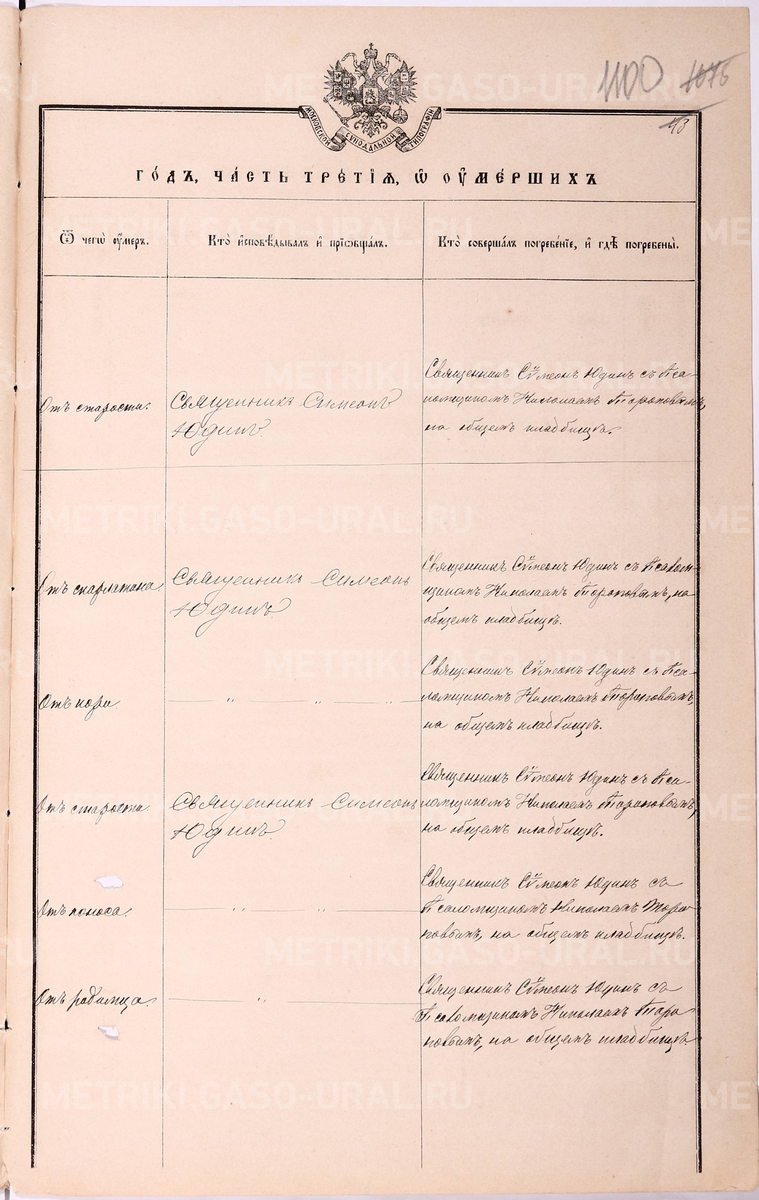 1100 1076
43
МОСКОВСКОЙ СѴНОДАЛЬНОЙ ТИПОГРАФІИ
ГОДЪ, ЧАСТЬ ТРЕТІЯ, Ѿ ОУМЕРШИХЪ
Ѿ чегѡ оумеръ.
Кто исповѣдывалъ и прїѡбщалъ.
Кто совершалъ погребенїе, и гдѣ погребены.
Отъ старости.
Священникъ Симеонъ
Юдинъ
Священникъ Сѵмеонъ Юдинъ съ Пса-
ломщикомъ Николаемъ Тороповымъ,
на общемъ кладбищѣ.
Отъ скарлатина
Священникъ Симеонъ
Юдинъ
Священникъ Сѵмеонъ Юдинъ съ Псалом-
щикомъ Николаемъ Тороповымъ, на
общемъ кладбищѣ.
Отъ кори
" " "
Священникъ Сѵмеонъ Юдинъ съ Пса-
ломщикомъ Николаемъ Тороповымъ,
на общемъ кладбищѣ.
Отъ старости
Священникъ Симеонъ
Юдинъ
Священникъ Сѵмеонъ Юдинъ съ Пса-
ломщикомъ Николаемъ Тороповымъ,
на общемъ кладбищѣ.
Отъ поноса
" "
Священникъ Сѵмеонъ Юдинъ съ
Псаломщикомъ Николаемъ Торо-
повымъ, на общемъ кладбищѣ.
Отъ родимца.
"
Священникъ Сѵмеонъ Юдинъ съ
Псаломщикомъ Николаемъ Торо-
повымъ, на общемъ кладбищѣ
METRIKI.GASO-URAL.RU